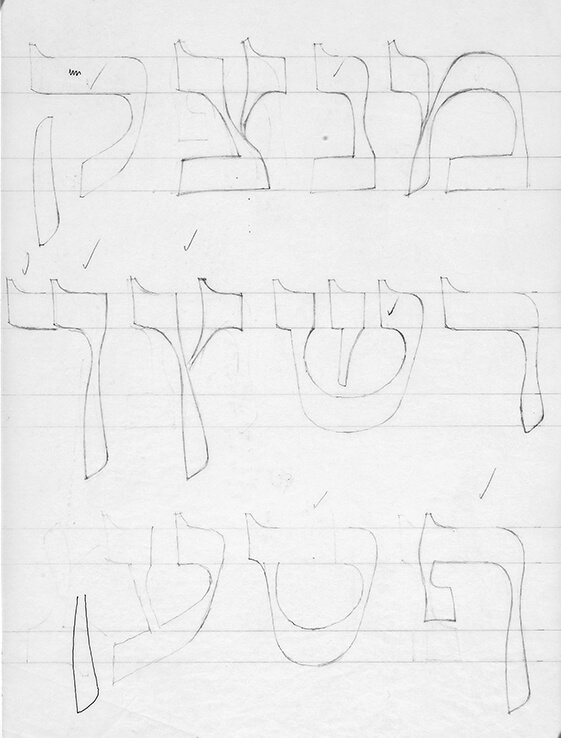 מ נ צ ק
ר ש ץ ך
ף ס ע ן